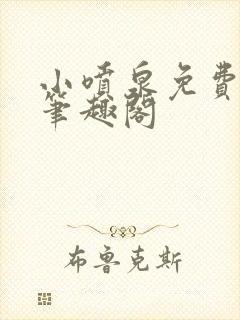 小喷泉免费
笔趣阁
布鲁克斯